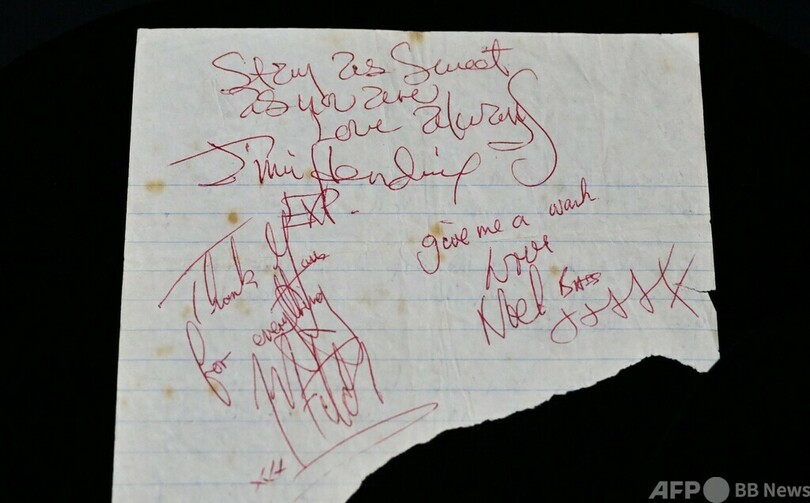 Stay as Sweet
as you are
Love always
Jimi Hendrix
EXP.
Thank You
for everything
Mitch
xxx
give me a wank
Love
Noel BASS
xxxxx
AFP BB News